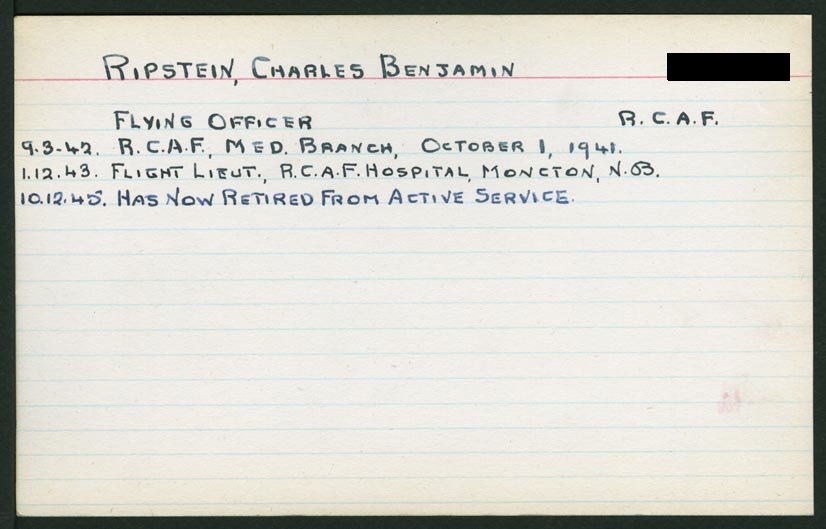 RIPSTEIN, CHARLES BENJAMIN
FLYING OFFICER R.C.A.F.
9.3.42. R.C.A.F., MED. BRANCH, OCTOBER 1, 1941.
1.12.43. FLIGHT LIEUT., R.C.A.F. HOSPITAL, MONCTON, N.B.
10.12.45. HAS NOW RETIRED FROM ACTIVE SERVICE.